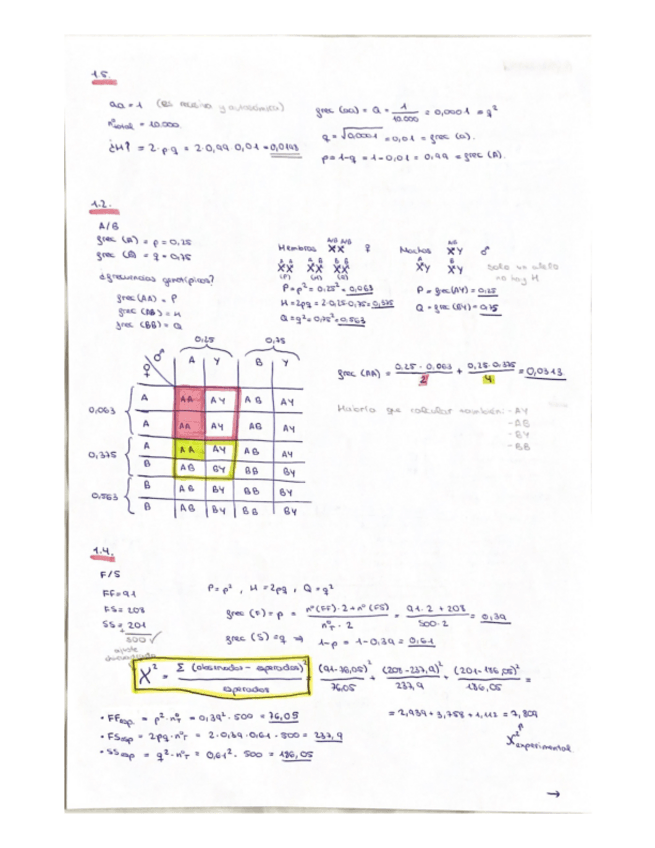 1.5.
aa = 1 (es recesivo y autosómico)
nº total = 10.000
¿H? = 2·p·q = 2·0,99·0,01 = 0,0198
frec (aa) = Q = 1/10.000 = 0,0001 = q²
q = √0,0001 = 0,01 = frec (a).
p = 1-q = 1-0,01 = 0,99 = frec (A).
1.2.
A/B
frec (A) = p = 0,25
frec (B) = q = 0,75
¿frecuencias genotípicas?
frec (AA) = P
frec (AB) = H
frec (BB) = Q
Hembras XX ♀
A/B A/B
A A A B B B
XX XX XX
(P) (H) (Q)
P = p² = 0,25² = 0,063
H = 2pq = 2·0,25·0,75 = 0,375
Q = q² = 0,75² = 0,563
Machos XY ♂
A/B
A B
XY XY
solo un alelo
no hay H
P = frec (AY) = 0,25
Q = frec (BY) = 0,75
0,25 0,75
♂ A Y B Y
♀
0,063 A AA AY AB AY
A AA AY AB AY
0,375 A AA AY AB AY
B AB BY BB BY
0,563 B AB BY BB BY
B AB BY BB BY
frec (AA) = 0,25·0,063/2 + 0,25·0,375/4 = 0,0313
Habría que calcular también: -AY
-AB
-BY
-BB
1.4.
F/S
FF = 91
FS = 208
SS = 201
500 ✓
P = p², H = 2pq, Q = q²
frec (F) = p = nº(FF)·2 + nº(FS)/nºT·2 = 91·2 + 208/500·2 = 0,39
frec (S) = q ⇒ 1-p = 1-0,39 = 0,61
X² = Σ (observados - esperados)²/esperados = (91-76,05)²/76,05 + (208-237,9)²/237,9 + (201-186,05)²/186,05 =
= 2,939 + 3,758 + 1,112 = 7,809
X² experimental
• FF esp = p²·nºT = 0,39²·500 = 76,05
• FS esp = 2pq·nºT = 2·0,39·0,61·500 = 237,9
• SS esp = q²·nºT = 0,61²·500 = 186,05
→